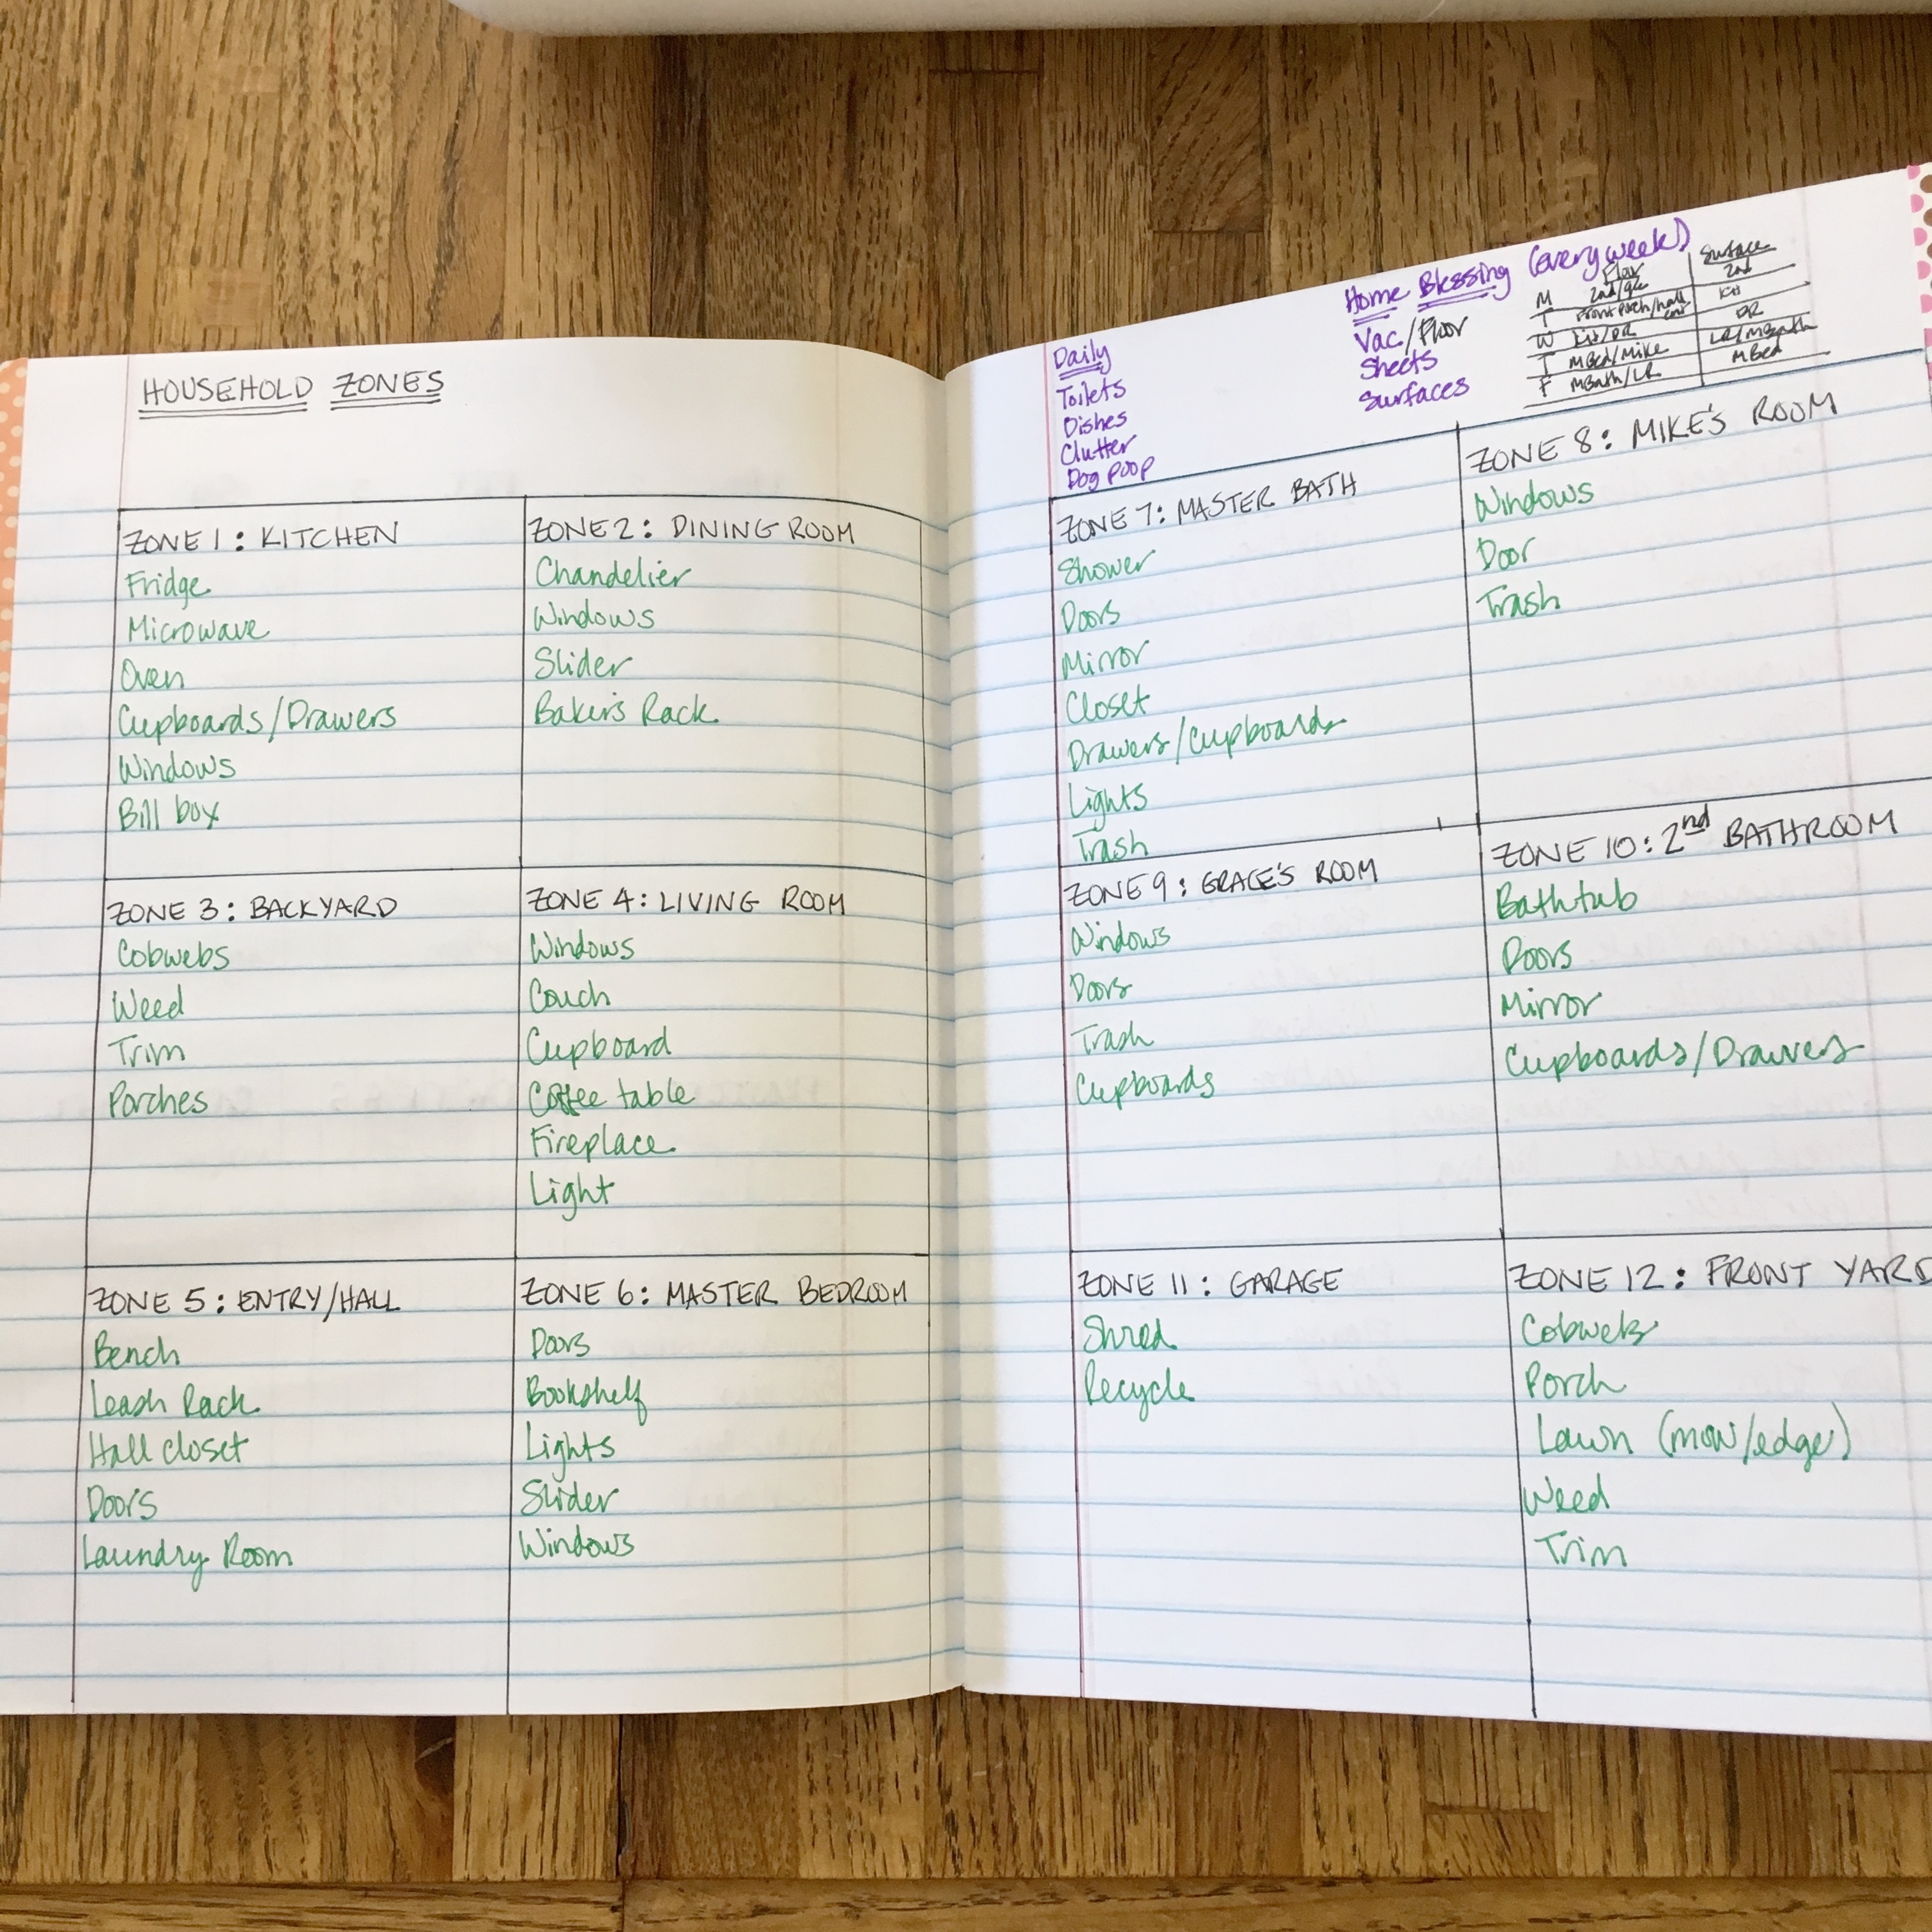 HOUSEHOLD ZONES
ZONE 1: KITCHEN
Fridge
Microwave
Oven
Cupboards/Drawers
Windows
Bill box
ZONE 2: DINING ROOM
Chandelier
Windows
Slider
Baker's Rack
ZONE 3: BACKYARD
Cobwebs
Weed
Trim
Porches
ZONE 4: LIVING ROOM
Windows
Couch
Cupboard
Coffee table
Fireplace
Light
ZONE 5: ENTRY/HALL
Bench
Leash Rack
Hall closet
Doors
Laundry Room
ZONE 6: MASTER BEDROOM
Doors
Bookshelf
Lights
Slider
Windows
Daily
Toilets
Dishes
Clutter
Dog poop
Home Blessing (every week)
Vac/Floor
Sheets
Surfaces
Floor Surface
M 2nd/ 2nd
T Front Porch/hall Kit
W Kit/DR DR
T MBed/Mike LR/MBath
F MBath/LR MBed
ZONE 7: MASTER BATH
Shower
Doors
Mirror
Closet
Drawers/Cupboards
Lights
Trash
ZONE 8: MIKE'S ROOM
Windows
Door
Trash
ZONE 9: GRACE'S ROOM
Windows
Doors
Trash
Cupboards
ZONE 10: 2nd BATHROOM
Bathtub
Doors
Mirror
Cupboards/Drawers
ZONE 11: GARAGE
Shred
Recycle
ZONE 12: FRONT YARD
Cobwebs
Porch
Lawn (mow/edge)
Weed
Trim